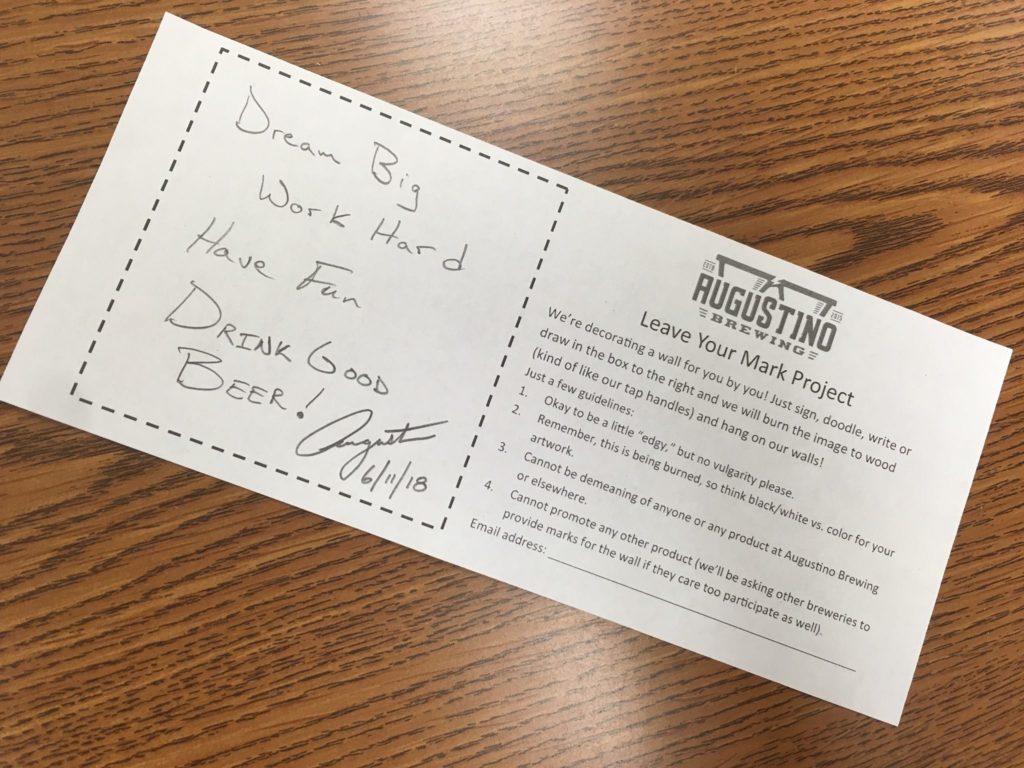 Dream Big
Work Hard
Have Fun
DRINK GOOD
BEER!
August
6/11/18
AUGUSTINO
BREWING
Leave Your Mark Project
We're decorating a wall for you by you! Just sign, doodle, write or
draw in the box to the right and we will burn the image to wood
(kind of like our tap handles) and hang on our walls!
Just a few guidelines:
1. Okay to be a little "edgy," but no vulgarity please.
2. Remember, this is being burned, so think black/white vs. color for your
artwork.
3. Cannot be demeaning of anyone or any product at Augustino Brewing
or elsewhere.
4. Cannot promote any other product (we'll be asking other breweries to
provide marks for the wall if they care too participate as well).
Email address: